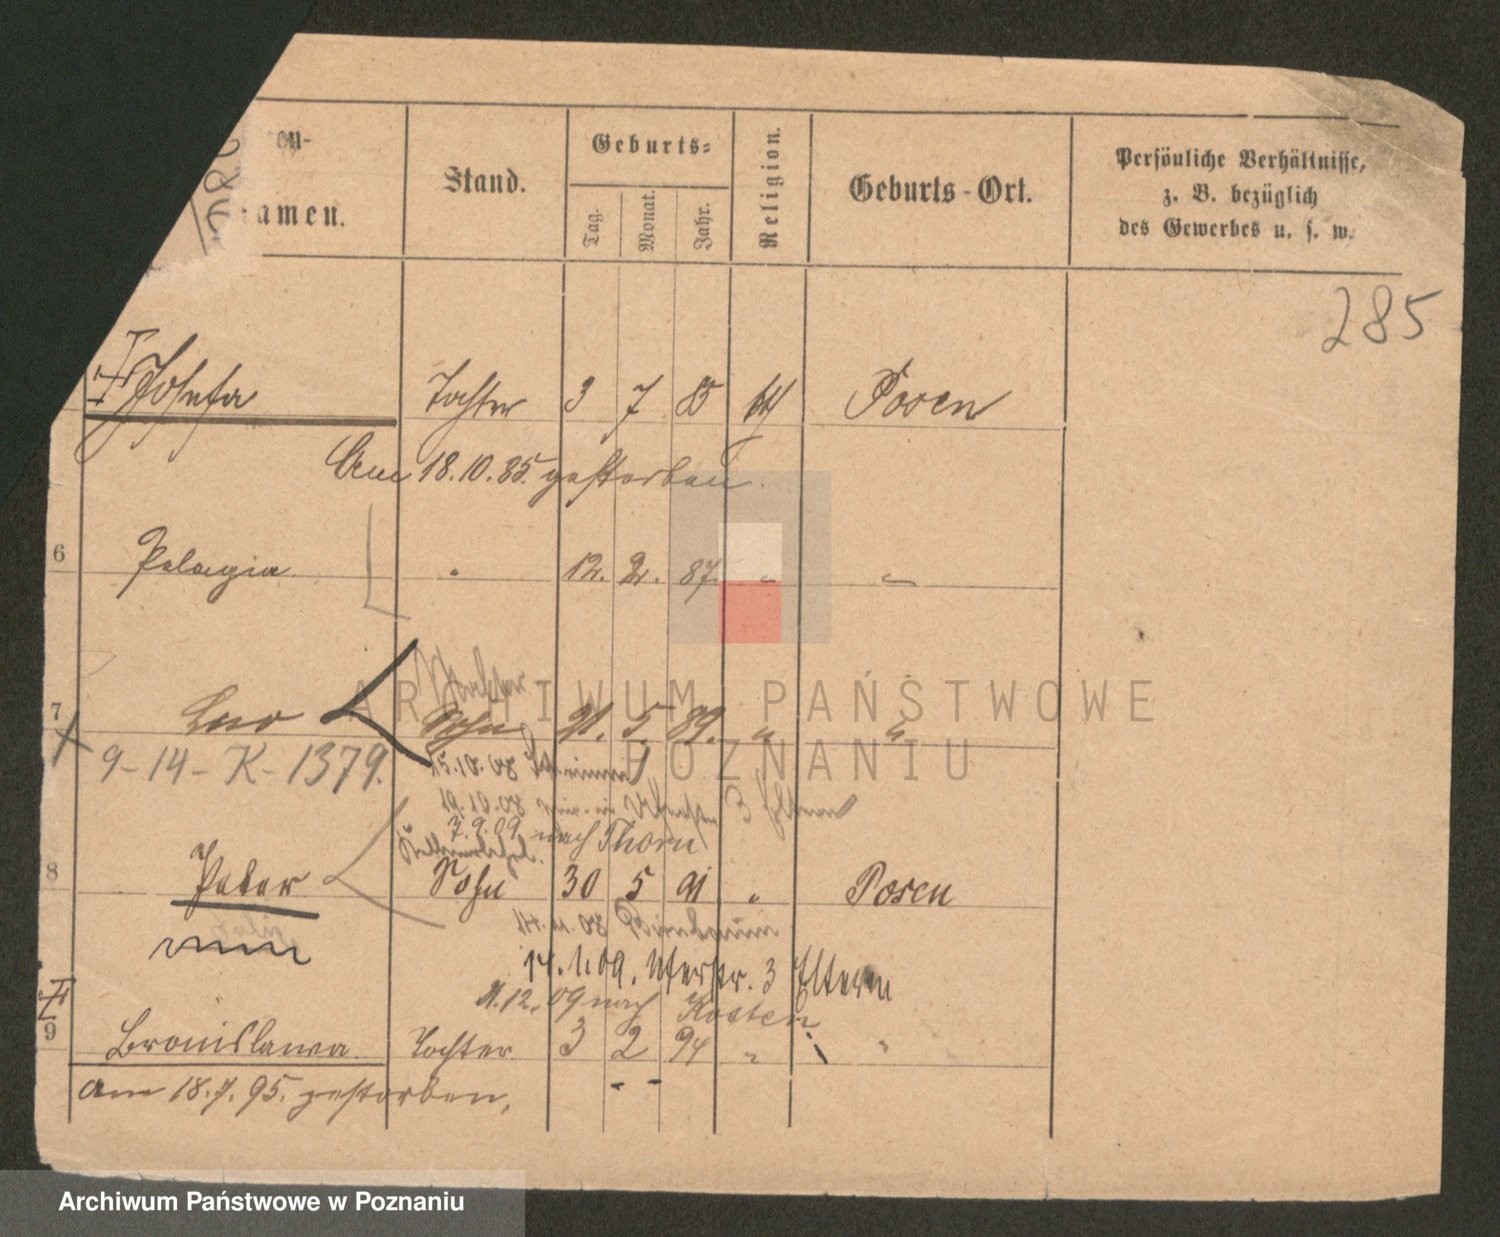 on-
amen.
Stand.
Geburts-
Tag.
Monat.
Jahr.
Religion.
Geburts-Ort.
Persönliche Verhältnisse,
z. B. bezüglich
des Gewerbes u. s. w.
285
Josefa Tochter 3 7 85 kth Posen
Am 18.10.85. gestorben.
6 Pelagia " 12. 2. 87. " "
7 Leo Sohn 21. 5. 89. " "
9-14-K-1379.
15.10.08
19.10.08
7.9.09 nach Thorn
8 Peter Sohn 30 5 91 " Posen
14.11.08 Birnbaum
14.1.09. 3 Eltern
1.12.09 nach Kosten
9 Bronislawa Tochter 3 2 94 " "
am 18.7.95. gestorben,
ARCHIWUM PAŃSTWOWE
POZNANIU
Archiwum Państwowe w Poznaniu